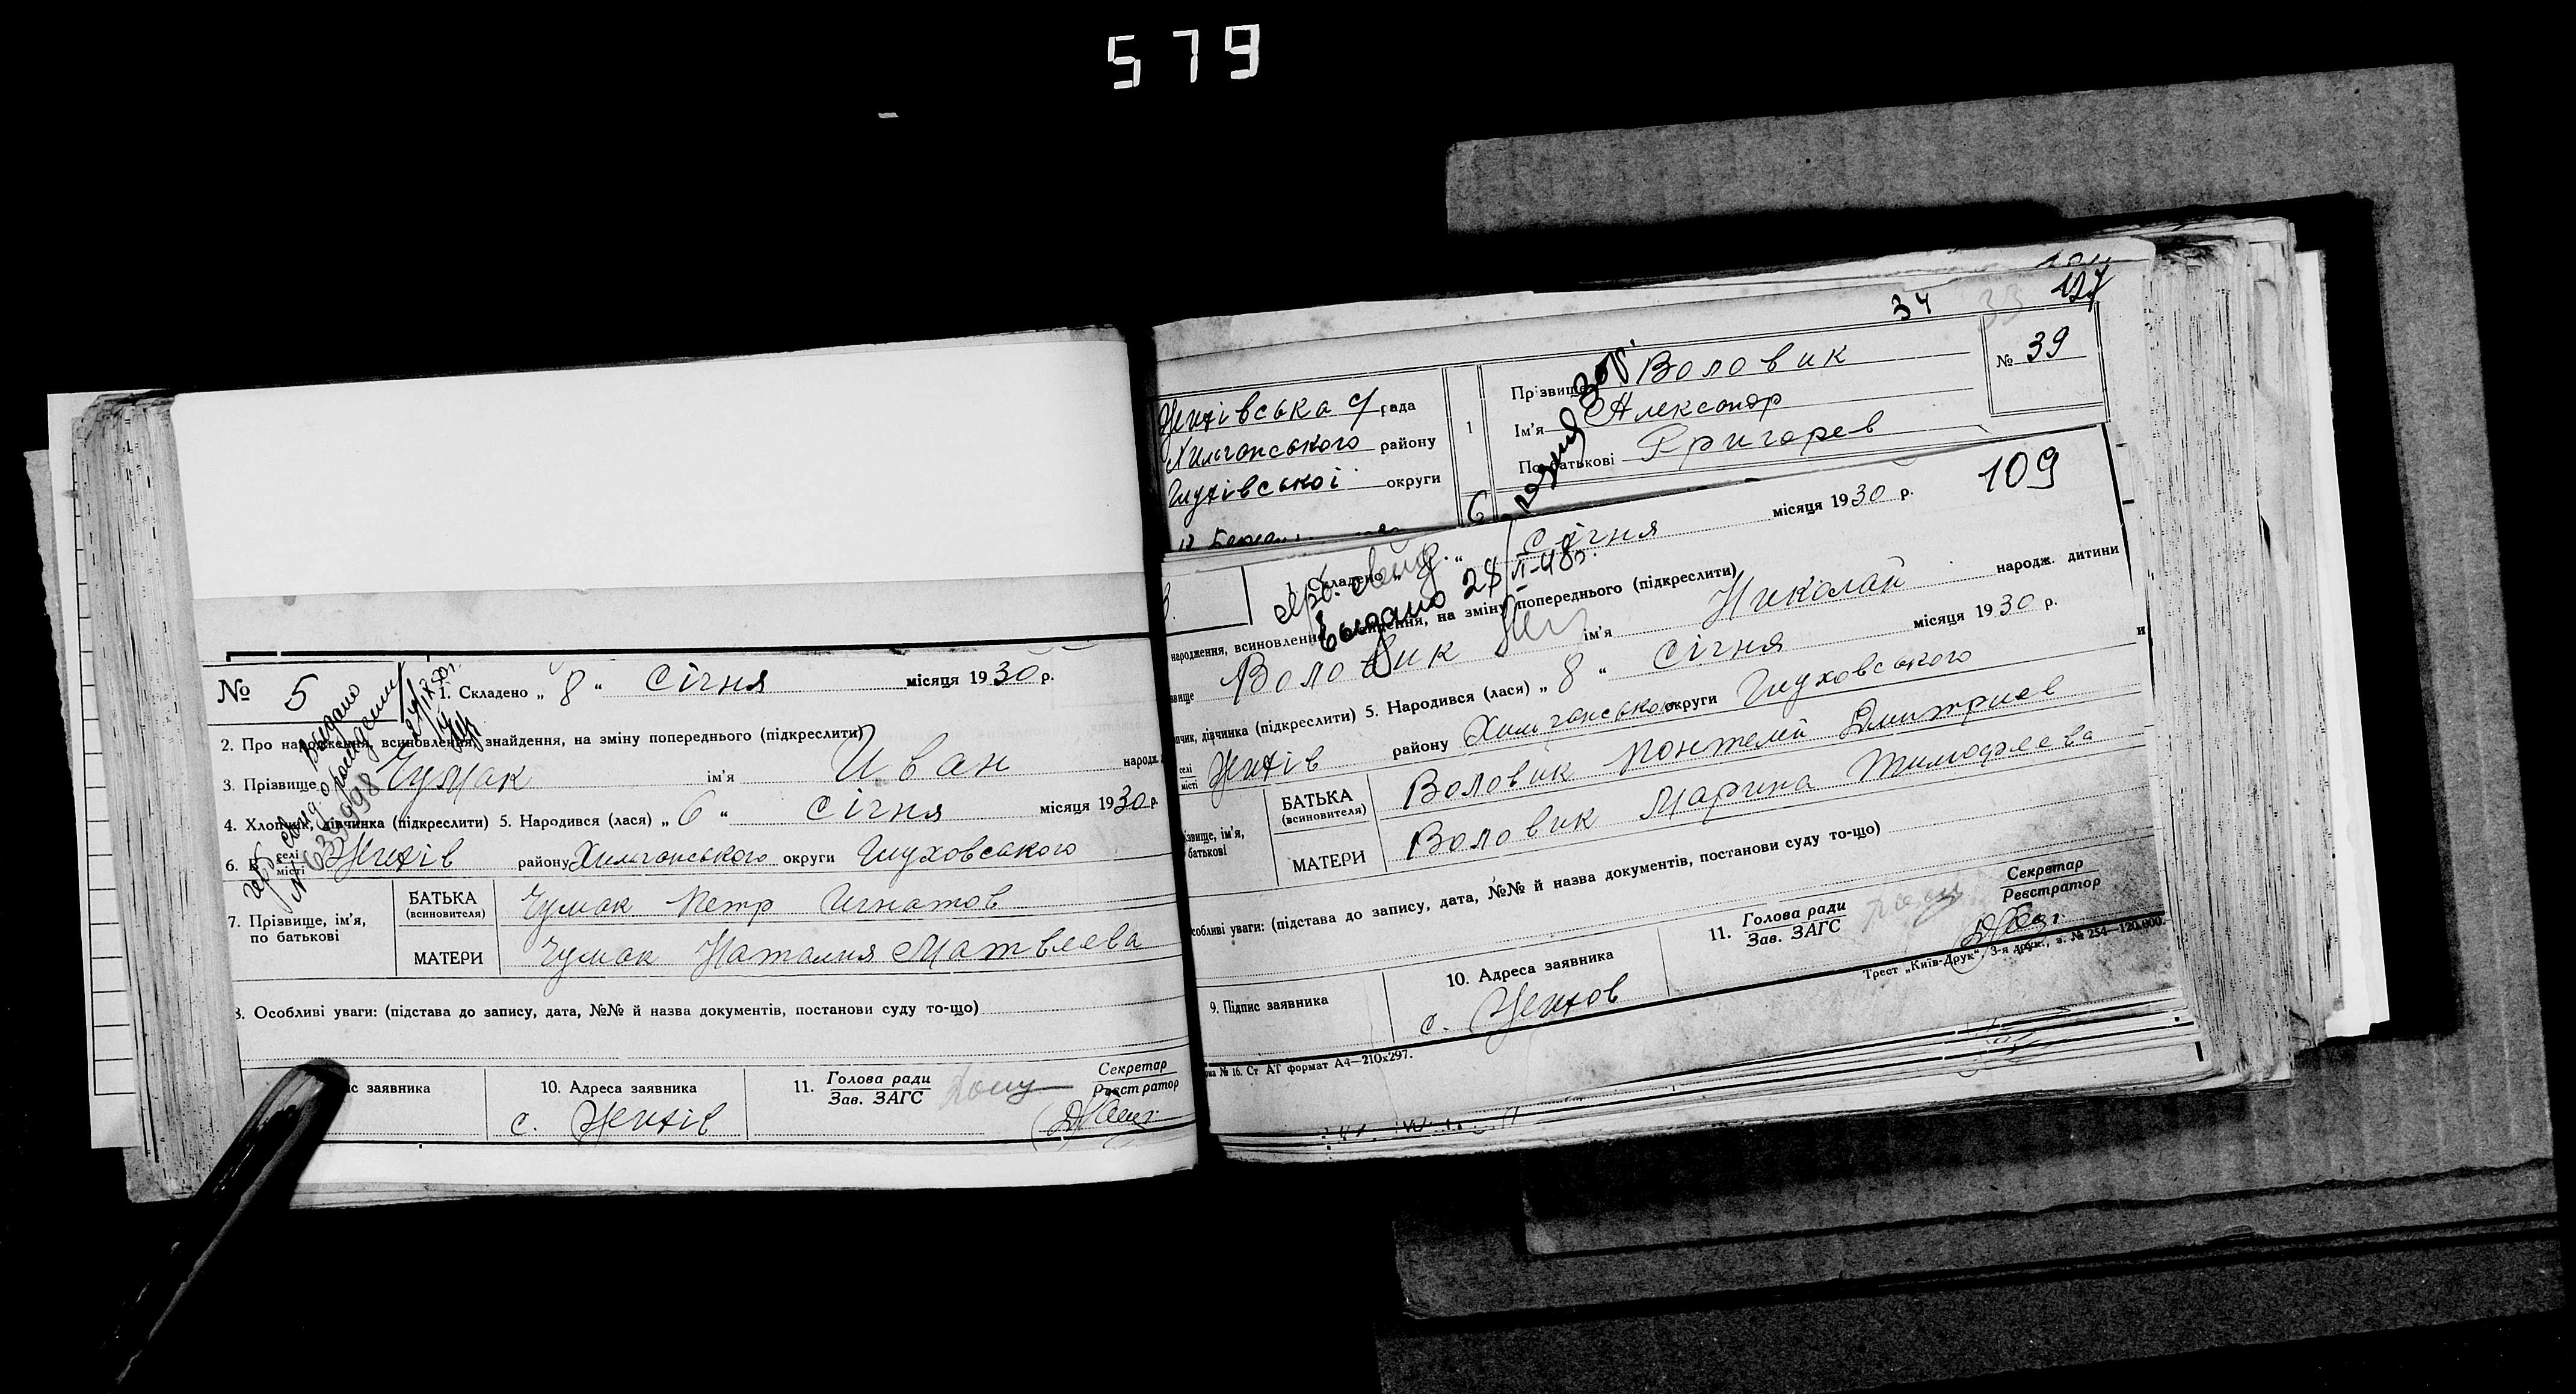 579
№ 5
1. Складено „ 8 “ Січня місяця 1930 р.
2. Про народження, всиновлення, знайдення, на зміну попереднього (підкреслити)
3. Прізвище Чумак ім'я Иван народж.
4. Хлопчик, дівчинка (підкреслити) 5. Народився (лася) „ 6 “ Січня місяця 1930 р.
6. В селі місті району Хильчанського округи Глуховського
7. Прізвище, ім'я, по батькові
БАТЬКА (всиновителя) Чумак Петр Игнатов
МАТЕРИ Чумак Наталия Матвеева
8. Особливі уваги: (підстава до запису, дата, №№ й назва документів, постанови суду то-що)
с заявника
10. Адреса заявника
с.
11. Голова ради
Зав. ЗАГС
Секретар
Реєстратор
Выдано
№ 635998
34 33 127
с/рада
Хильчанського району
Глухівської округи
1
Прізвище Воловик
Ім'я Александр
По батькові Григорев
№ 39
109
Складено „ 8 “ Січня місяця 1930 р.
Выдано 28/II-48г.
народження, всиновлення, знайдення, на зміну попереднього (підкреслити)
звище Воловик ім'я Николай народж. дитини
пчик, дівчинка (підкреслити) 5. Народився (лася) „ 8 “ Січня місяця 1930 р.
селі місті району Хильчанського округи Глуховського
ізвище, ім'я, батькові
БАТЬКА (всиновителя) Воловик Понтелей Дмитриев
МАТЕРИ Воловик Марина Тимофеева
собливі уваги: (підстава до запису, дата, №№ й назва документів, постанови суду то-що)
9. Підпис заявника
10. Адреса заявника
с.
11. Голова ради
Зав. ЗАГС
Секретар
Реєстратор
№ 16. Ст АТ формат А4—210х297.
Трест „Київ-Друк“, 3-я друк., з. № 254—120.000.